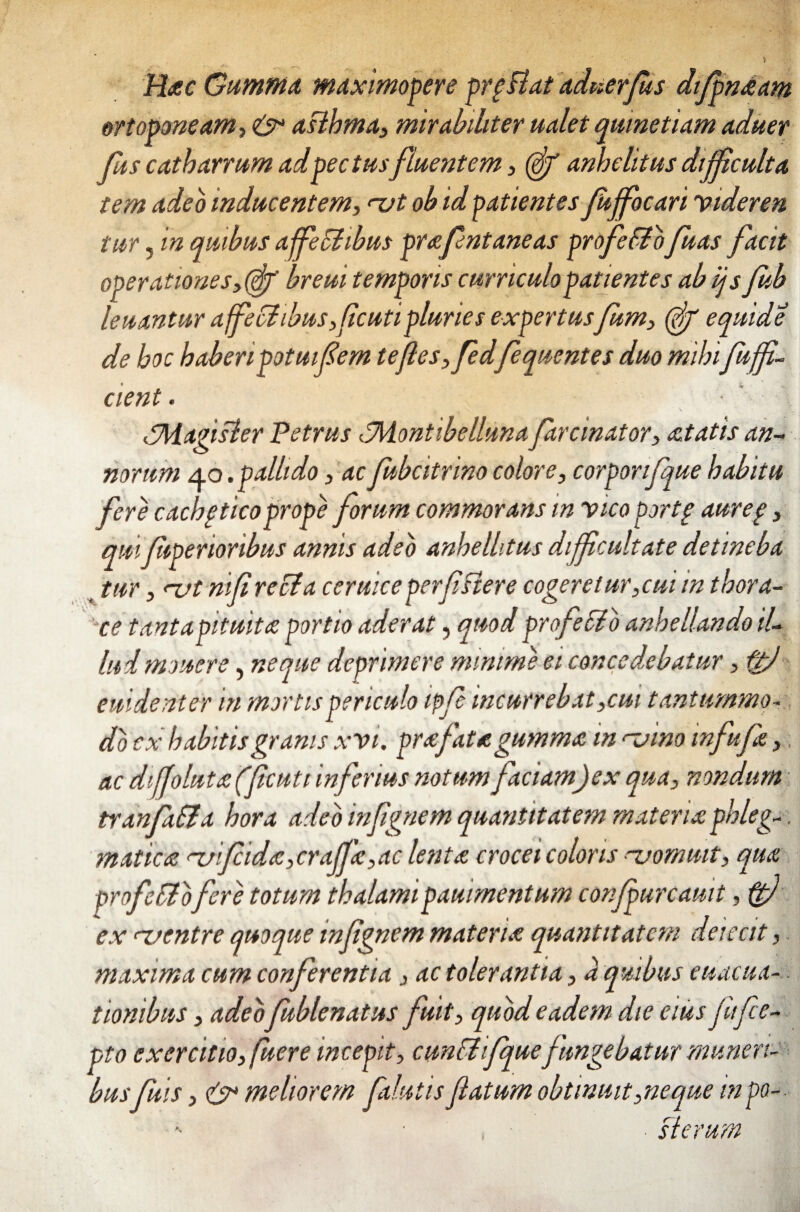 Hæc Gumma maximopere pręstat aduersus dispnæam
ortoponeam, & asthma, mirabiliter ualet quinetiam aduer
sus catharrum ad pectus fluentem, & anhelitus difficulta
tem adeò inducentem, vt ob id patientes suffocari videren
tur, in quibus affectibus præsentaneas profectò suas facit
operationes, & breui temporis curriculo patientes ab ijs sub
leuantur affectibus, sicuti pluries expertus sum, & equidē
de hoc haberi potuissem testes, sed sequentes duo mihi suffi-
cient.
Magister Petrus Montibelluna sarcinator, ætatis an-
norum 40. pallido, ac subcitrino colore, corporisque habitu
ferè cachętico propè forum commorans in vico portę aureę,
qui superioribus annis adeò anhellitus difficultate detineba
tur, vt nisi recta ceruice persistere cogeretur, cui in thora-
ce tanta pituitæ portio aderat, quod profectò anhellando il-
lud mouere, neque deprimere minimè ei concedebatur, &
euidenter in mortis periculo ipse incurrebat, cui tantummo-
dò ex habitis granis xvi. præfatæ gummæ in vino infusæ,
ac dissolutæ (sicuti inferius notum faciam) ex qua, nondum
transacta hora adeò insignem quantitatem materiæ phleg-
maticæ viscidæ, crassæ, ac lentæ crocei coloris vomuit, quæ
profectò ferè totum thalami pauimentum conspurcauit, &
ex ventre quoque insignem materiæ quantitatem deiecit,
maxima cum conferentia, ac tolerantia, à quibus euacua-
tionibus, adeò sublenatus fuit, quòd eadem die eius susce-
pto exercitio, suere incepit, cunctisque fungebatur muneri-
bus suis, & meliorem salutis statum obtinuit, neque in po-
sterum